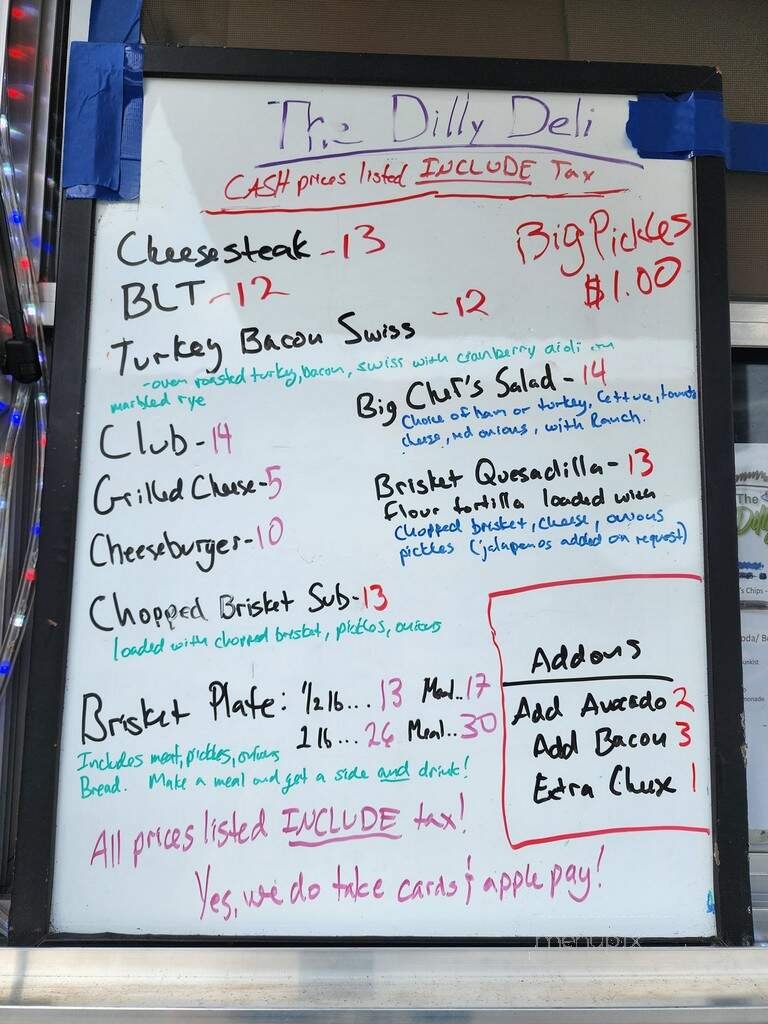 The Dilly Deli
CASH prices listed INCLUDE Tax
Cheesesteak - 13
Big Pickles
$1.00
BLT - 12
Turkey Bacon Swiss - 12
- oven roasted turkey, bacon, swiss with cranberry aioli on
marbled rye
Big Chef's Salad - 14
Choice of ham or turkey, lettuce, tomato
cheese, red onions, with Ranch.
Club - 14
Grilled Cheese - 5
Cheeseburger - 10
Brisket Quesadilla - 13
Flour tortilla loaded with
chopped brisket, cheese, onions
pickles (jalapenos added on request)
Chopped Brisket Sub - 13
loaded with chopped brisket, pickles, onions
Brisket Plate: 1/2 lb... 13 Meal.. 17
1 lb... 26 Meal.. 30
Includes meat, pickles, onions
Bread. Make a meal and get a side and drink!
Addons
Add Avocado 2
Add Bacon 3
Extra Cheese 1
All prices listed INCLUDE tax!
Yes, we do take cards & apple pay!
menupix
The